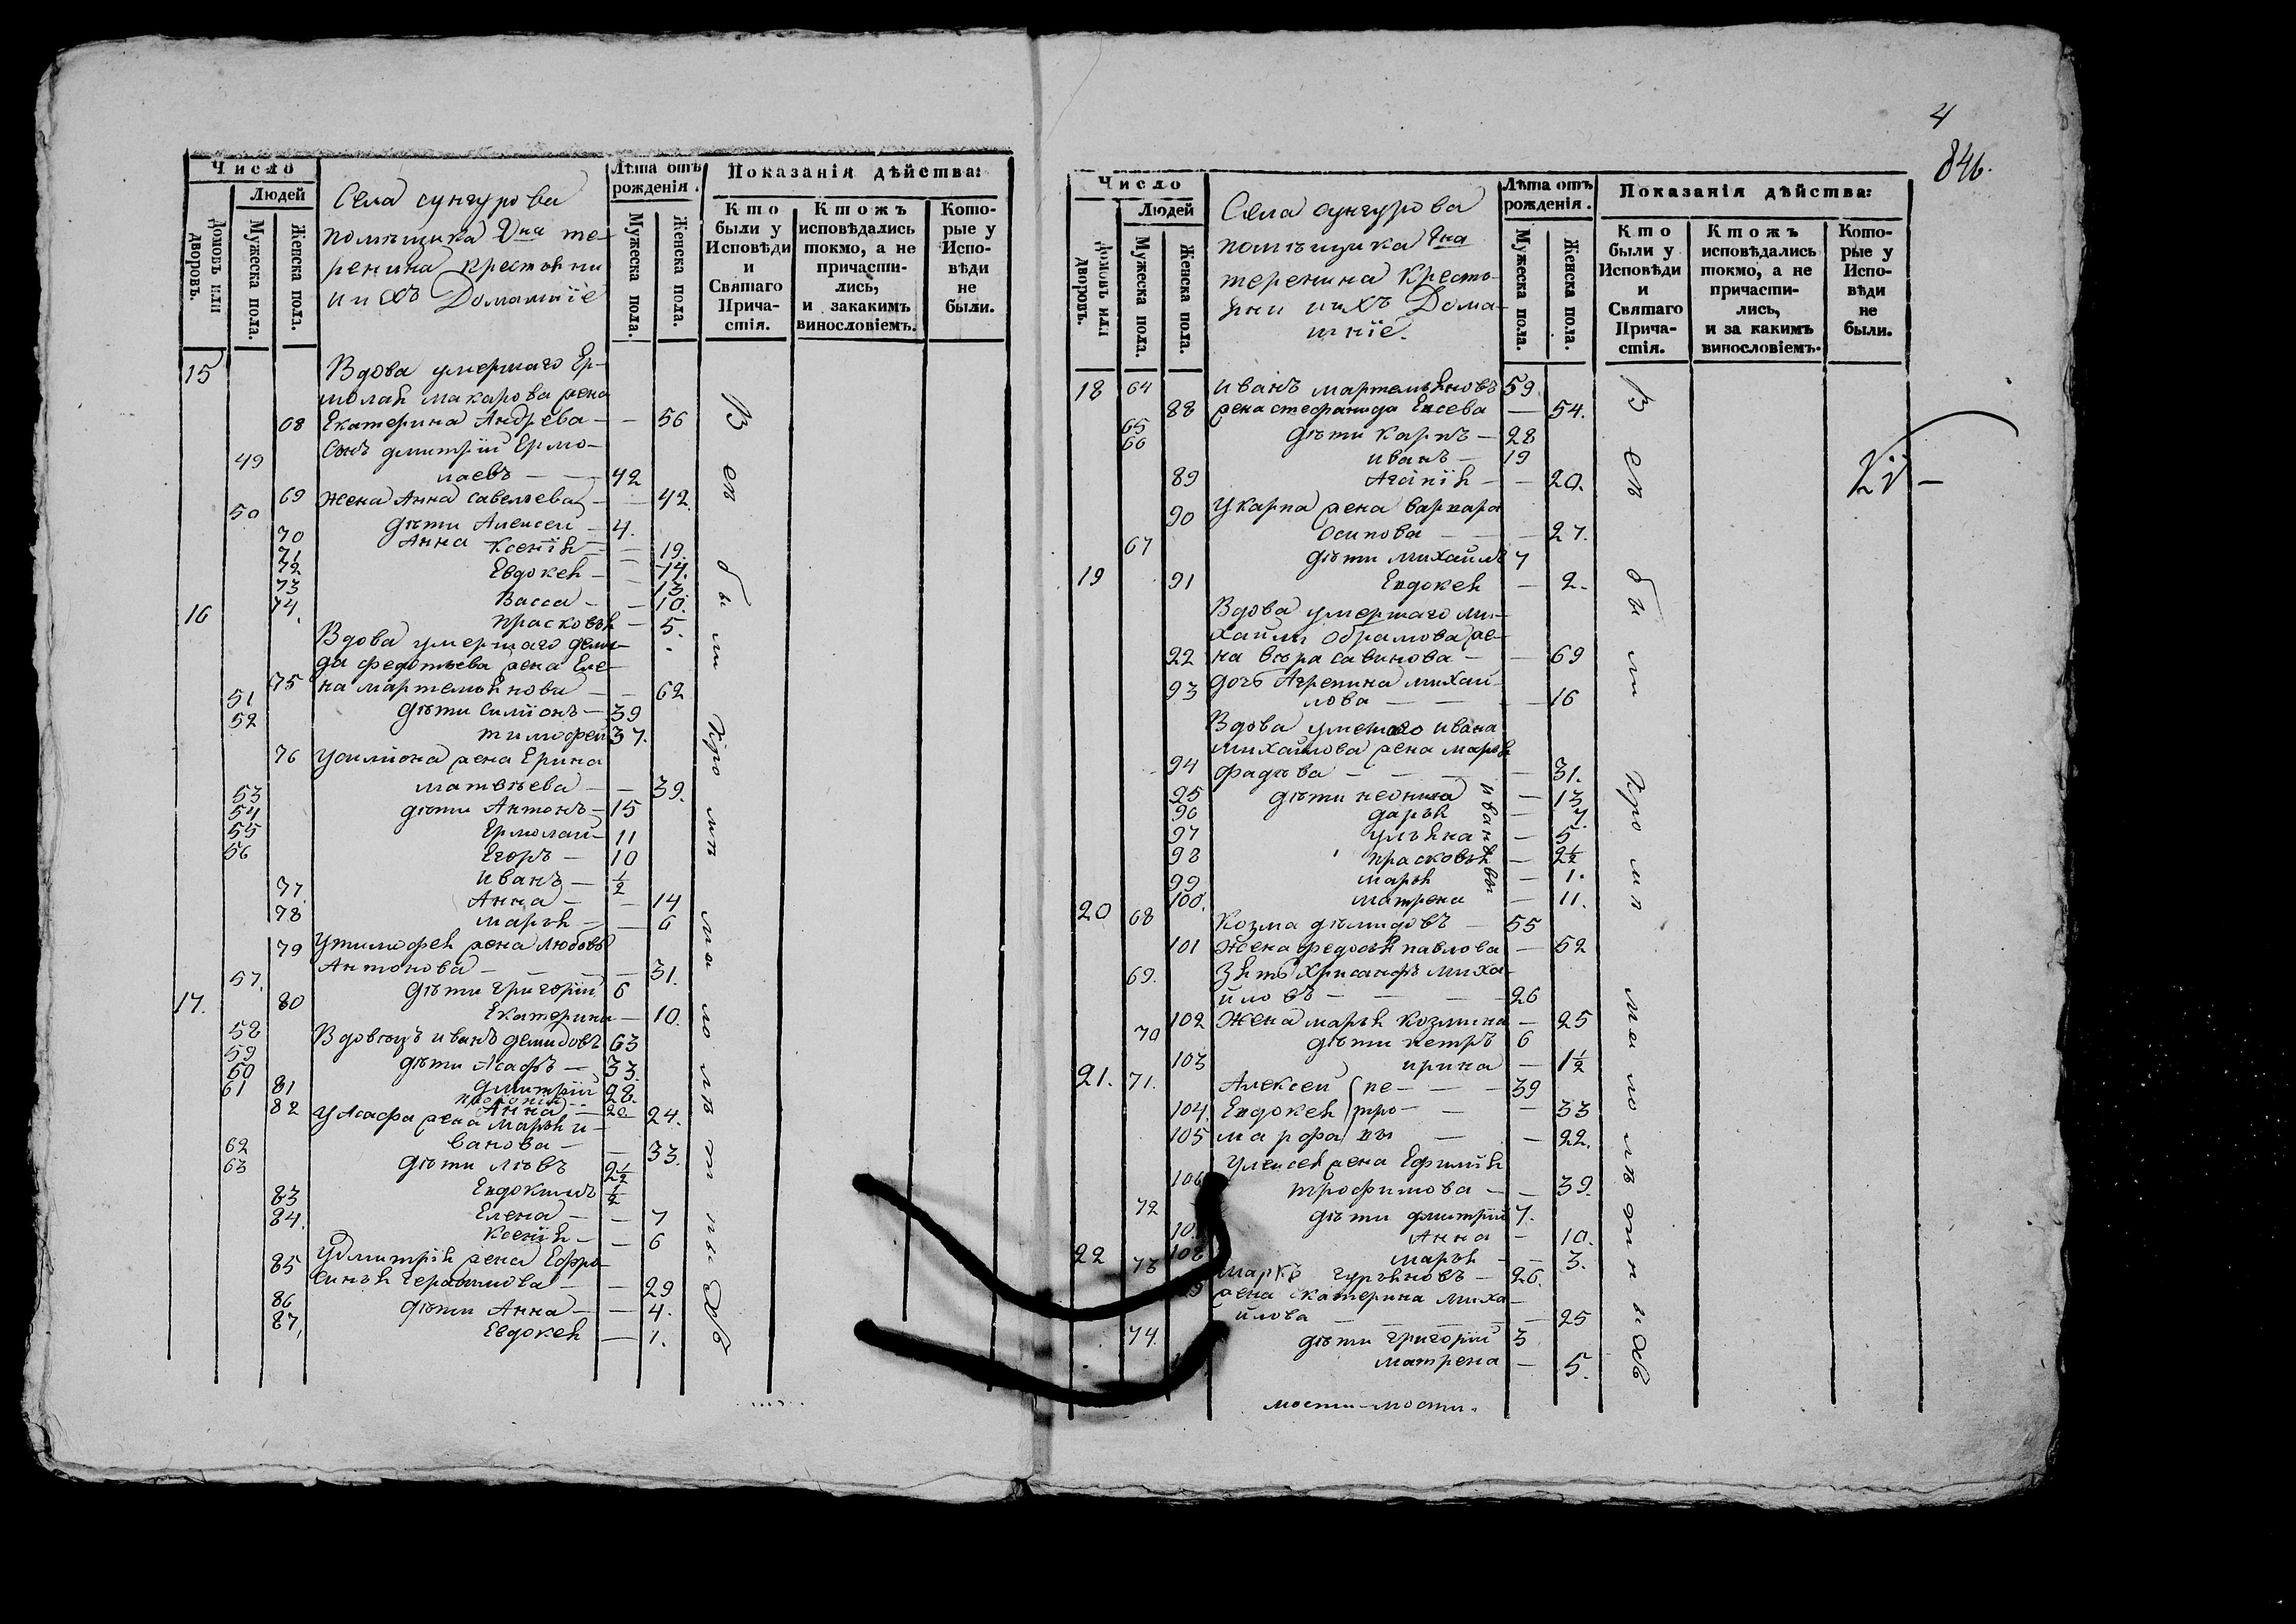 Число
Людей
Домовъ или дворовъ.
Мужеска пола.
Женска пола.
Села сунгурова
помѣщика
ренина крестьяни
ихъ Домашніе
Лѣта отъ рожденія.
Мужеска пола.
Женска пола.
Показанія дѣйства:
Кто были у Исповѣди и Святаго Причастія.
Ктожъ исповѣдались токмо, а не причастились, и закакимъ винословіемъ.
Которые у Исповѣди не были.
15 Вдова умершаго Ер-
молая макарова жена
68 Екатерина Андрева — — 56
49 Сынъ дмитрій Ермо-
лаевъ — 42
69 Жена Анна савельева — — 42.
50 дѣти Алексеи — 4.
70 Анна — 19.
71 Ксенія — 14.
72 Евдокея — 13.
73 Васса — 10.
74. прасковья — 5.
16 Вдова умершаго деми-
да федотьева жена Еле-
75 на мартемьянова — — 62
51 дѣти симіонъ — 39
52 тимофеи 37.
76 У симіона жена Ерина
матвѣева — — 39.
53 дѣти Антонъ — 15
54 Ермолаи — 11
55 Егоръ — 10
56 иванъ — ½
77. Анна — — 14
78 марья — — 6
79 У тимофея жена любовь
Антонова — — 31.
57. дѣти григорій 6
80 Екатерина — 10.
17. 58 Вдовецъ иванъ демидовъ 63
59 дѣти Асафъ — 33.
60 дмитрій 28.
61 20
81 Анна — 24.
82 У Асафа жена марья и-
ванова — — 33.
62 дѣти лѣвъ 2½
63 Евдокимъ ½
83 Елена — — 7
84. Ксенія — — 6
85 У дмитрія жена Ефро-
синья герасимова — — 29
86 дѣти Анна — — 4.
87. Евдокея — 1.
Всѣ были
4
846.
Число
Людей
Домовъ или дворовъ.
Мужеска пола.
Женска пола.
Села сунгурова
помѣщика
теренина кресть-
яни ихъ Дома-
шніе.
Лѣта отъ рожденія.
Мужеска пола.
Женска пола.
Показанія дѣйства:
Кто были у Исповѣди и Святаго Причастія.
Ктожъ исповѣдались токмо, а не причастились, и за какимъ винословіемъ.
Которые у Исповѣди не были.
18 64 иванъ мартемьяновъ 59
88 жена стефанида Елсева — 54.
65 дѣти карпъ — 28
66 иванъ — 19
89 Агапія — — 20.
90 У карпа жена варвара
Осипова — — 27.
67 дѣти михаилъ 7
91 Евдокея — 2.
19 Вдова умершаго ми-
хаилы Обрамова же-
92 на вѣра савинова — — 69
93 дочь Агрепина михаи-
лова — — 16
Вдова умершаго ивана
михаилова жена марья
94 фадѣва — — 31.
95 дѣти неонила — 13
96 дарья — 7.
97 ульяна — 5
98 прасковья — 2½
99 марья — 1.
100. матрена — 11.
ивановы
20 68 Козма дѣмидовъ — 55
101 Жена федосья павлова — 52
69. Зять Хрисанфъ миха-
иловъ — 26
102 Жена марья козмина — 25
70 дѣти петръ 6
103 ирина — 1½
21. 71. Алексеи (пе- — 39
104. Евдокея (тро- — 33
105 марфа вы — 22.
106 жена Ефимія
трофимова — — 39.
72 дѣти дмитрій 7.
Анна — 10.
108 марья — 3.
22 73 маркъ гурьяновъ — 26.
жена Екатерина миха-
илова — 25
74. дѣти григорій 3
матрена — 5.
Всѣ были